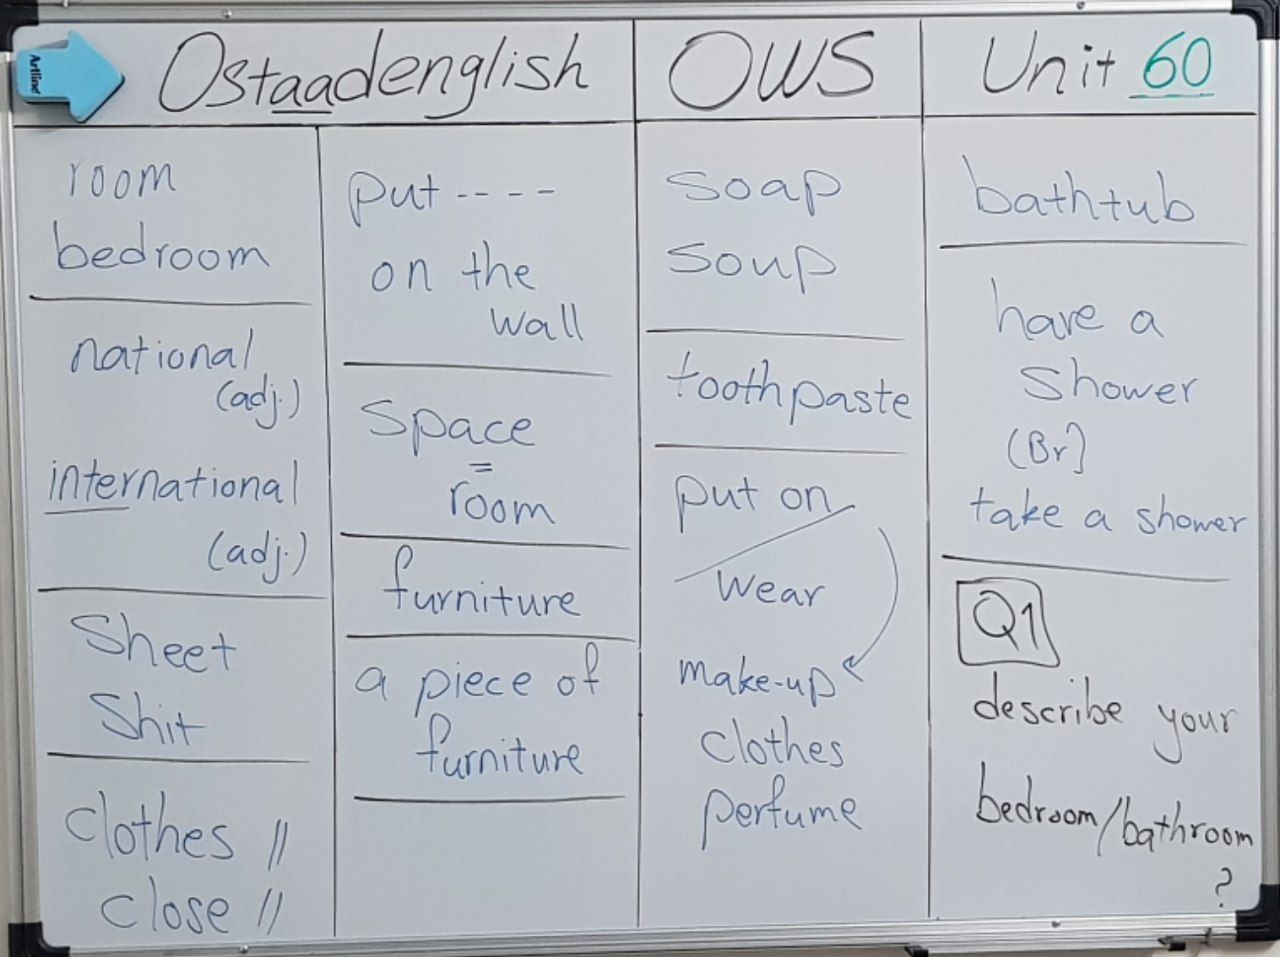 Artline
Ostaadenglish
OWS
Unit 60
room
bedroom
national
(adj.)
international
(adj.)
Sheet
Shit
clothes //
close //
put ----
on the
wall
Space
=
room
furniture
a piece of
furniture
soap
soup
toothpaste
put on
wear
make-up
clothes
perfume
bathtub
have a
shower
(Br)
take a shower
Q1
describe your
bedroom/bathroom
?